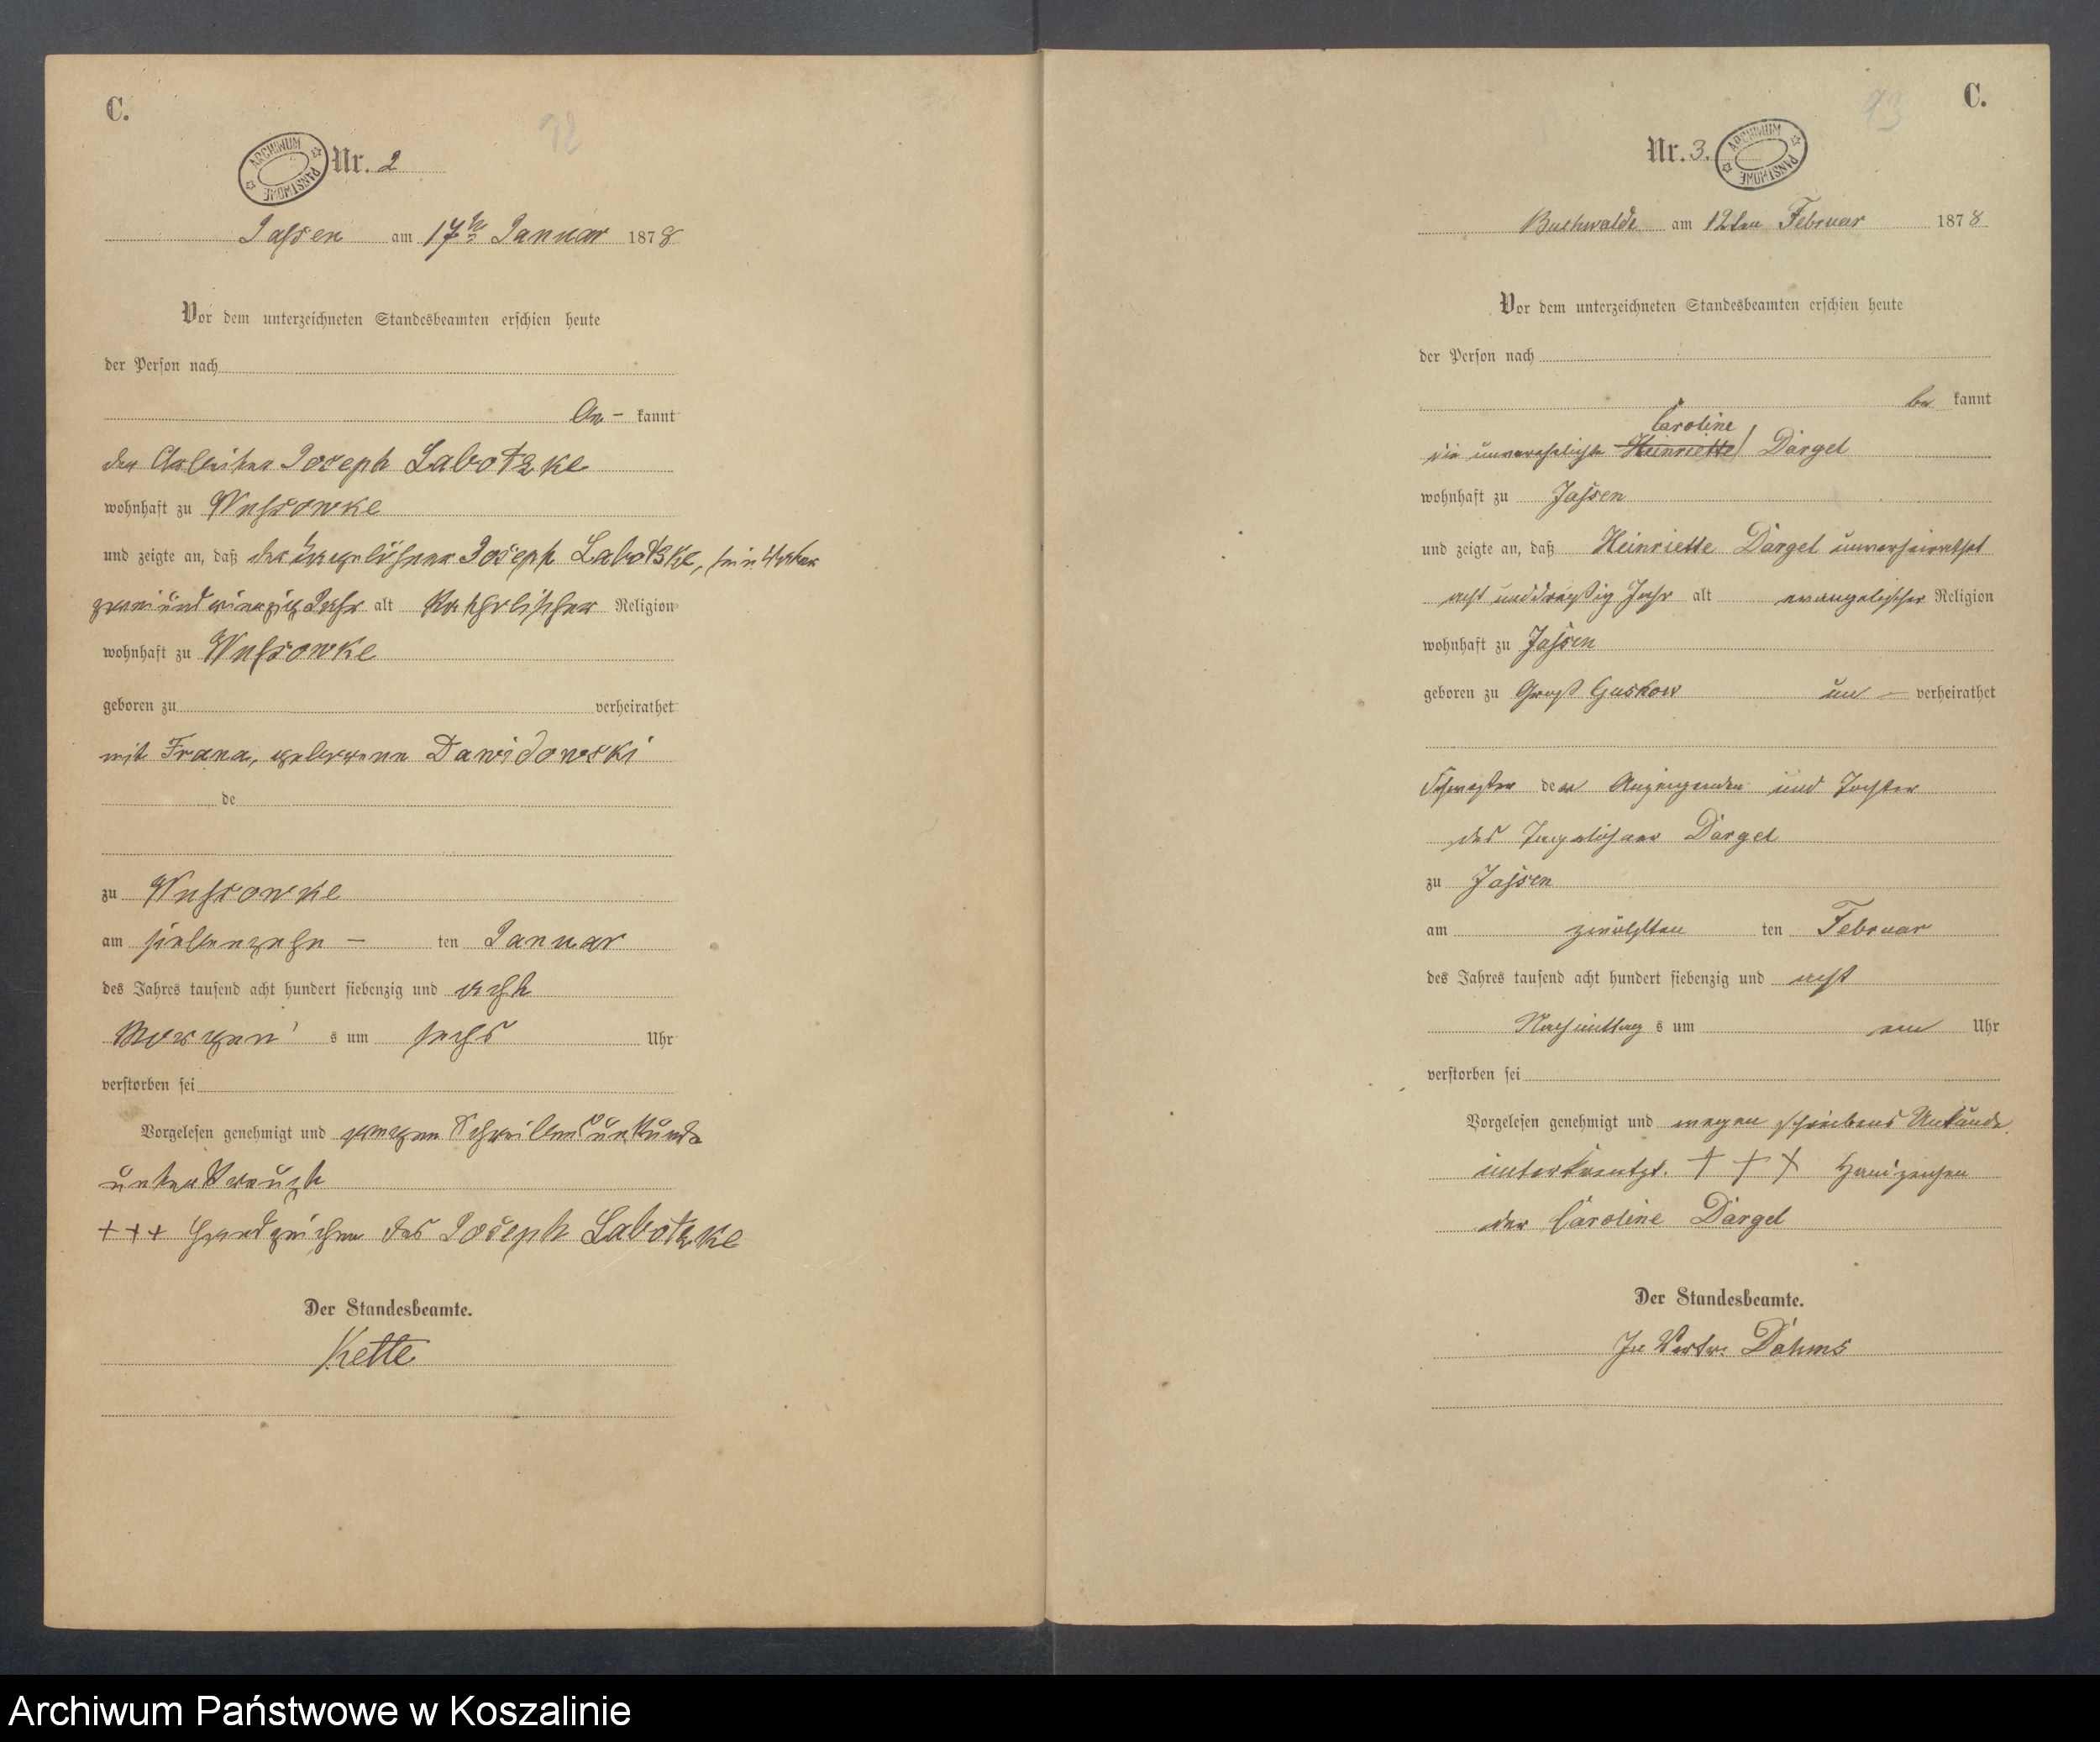 C.
92
ARCHIWUM PAŃSTWOWE
Nr. 2
Jassen am 17ten Januar 1878
Vor dem unterzeichneten Standesbeamten erschien heute
der Person nach
kannt
der Arbeiter Joseph Labotzke
wohnhaft zu Wussowke
und zeigte an, daß der Tagelöhner Joseph Labotzke, sein Vater
zwei und vierzig Jahr alt Katholischer Religion
wohnhaft zu Wussowke
geboren zu verheirathet
mit Frana, geborene Dawidowski
de
zu Wussowke
am siebenzehn – ten Januar
des Jahres tausend acht hundert siebenzig und acht
Morgen s um sechs Uhr
verstorben sei
Vorgelesen genehmigt und wegen Schreibens unkunde
unterkreuzt
+++ Handzeichen des Joseph Labotzke
Der Standesbeamte.
Kette
C.
93
Nr. 3.
ARCHIWUM PAŃSTWOWE
Buchwalde am 12ten Februar 1878
Vor dem unterzeichneten Standesbeamten erschien heute
der Person nach
be kannt
Caroline
die unverehelichte Heinriette Dargel
wohnhaft zu Jassen
und zeigte an, daß Heinriette Dargel unverheirathet
acht und dreyßig Jahr alt evangelischer Religion
wohnhaft zu Jassen
geboren zu Groß Guskow un – verheirathet
Schwester der Anzeigenden und Tochter
des Tagelöhner Dargel
zu Jassen
am zwölften ten Februar
des Jahres tausend acht hundert siebenzig und acht
Nachmittag s um ein Uhr
verstorben sei
Vorgelesen genehmigt und wegen schreibens Unkunde
unterkreutzt. + + + Handzeichen
der Caroline Dargel
Der Standesbeamte.
In Vertr. Dahms
Archiwum Państwowe w Koszalinie